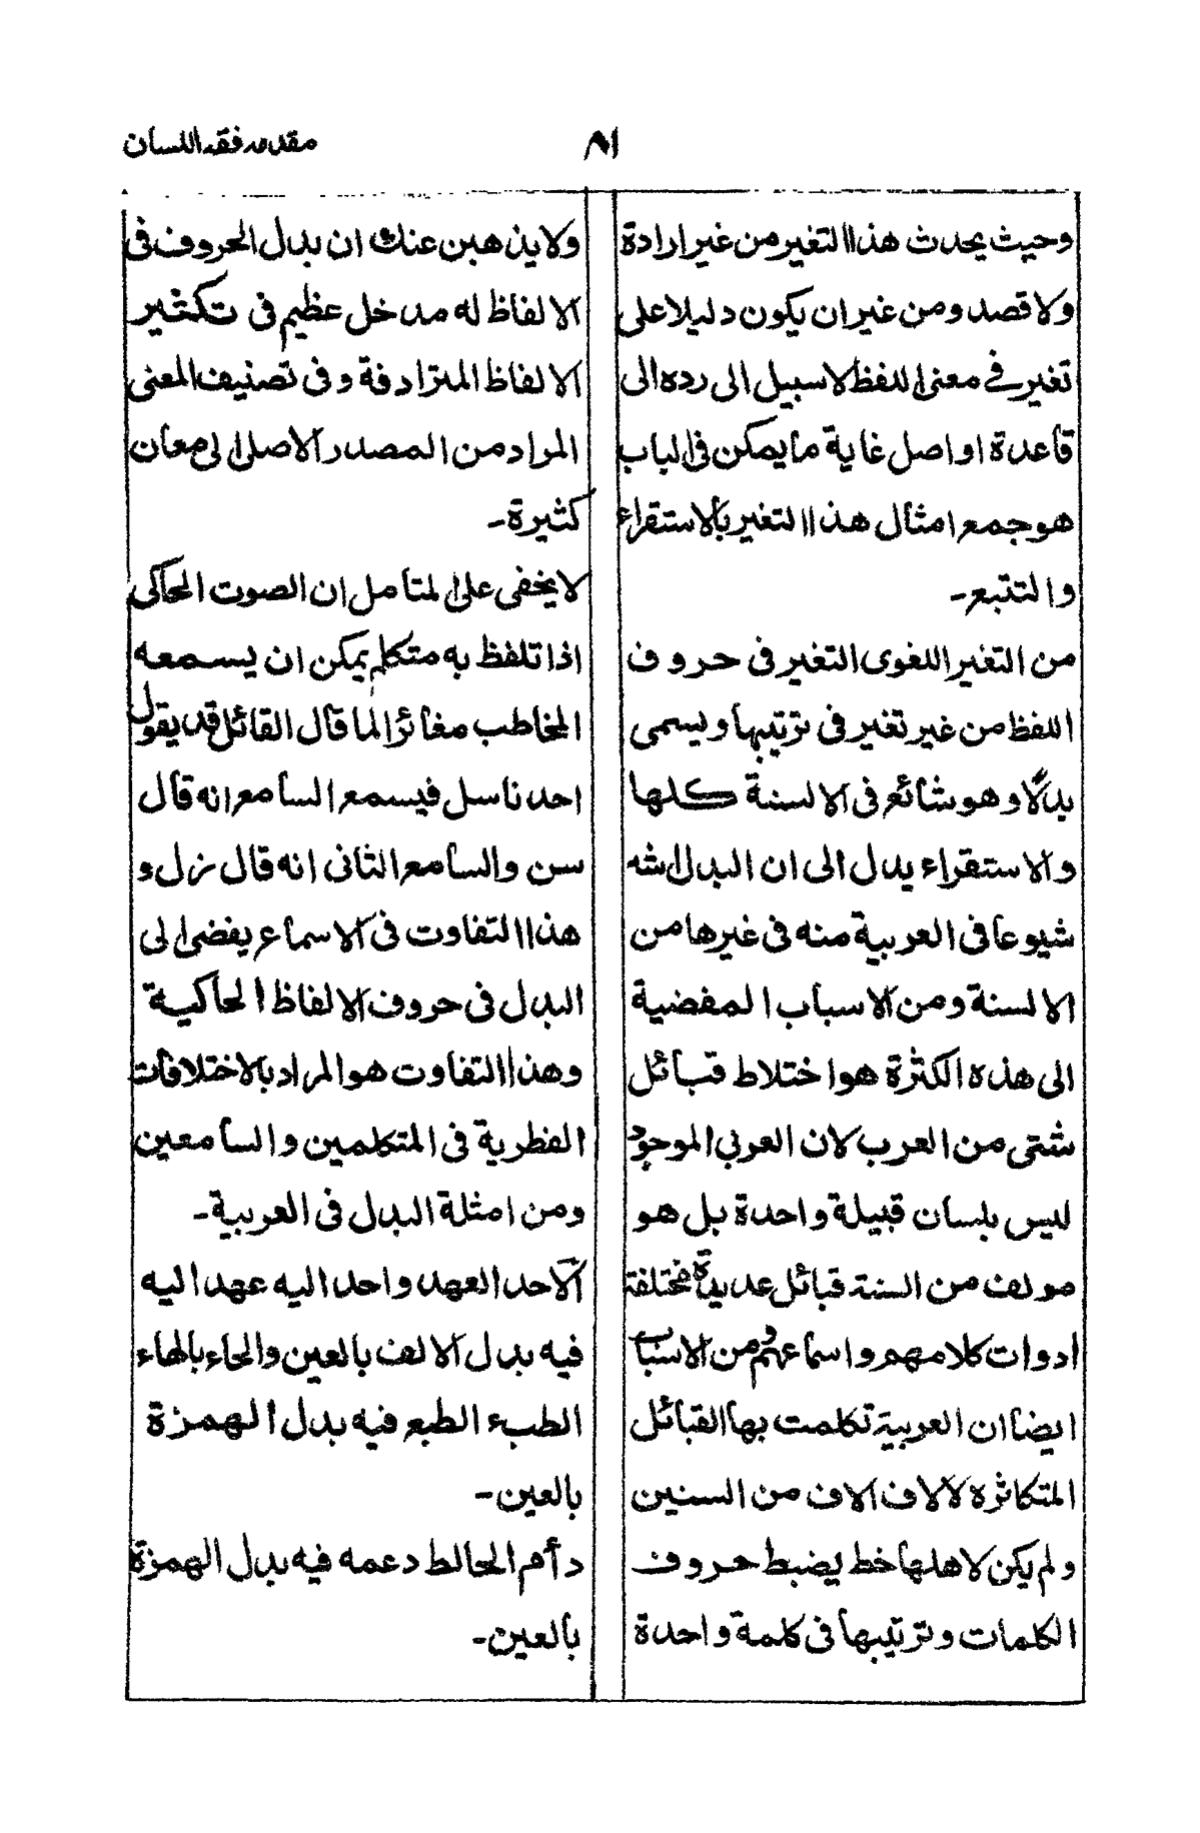 مقدمه فقه اللسان
٨١
وحيث يحدث هذا التغير من غير ارادة
ولا قصد ومن غير ان يكون دليلا على
تغير في معنى اللفظ لا سبيل الى رده الى
قاعدة او اصل غاية ما يمكن فى الباب
هو جمع امثال هذا التغير بالاستقراء
والتتبع۔
من التغير اللغوى التغير فى حروف
اللفظ من غير تغير فى ترتيبها ويسمى
بدلًا وهو شائع فى الالسنة كلها
والاستقراء يدل الى ان البدل اشد
شيوعا فى العربية منه فى غيرها من
الالسنة ومن الاسباب المفضية
الى هذه الكثرة هو اختلاط قبائل
شتى من العرب لان العربي الموجود
ليس بلسان قبيلة واحدة بل هو
مولف من السنة قبائل عديدة مختلفة
ادوات كلامهم واسماعهم ومن الاسباب
ايضا ان العربية تكلمت بها القبائل
المتكاثرة لآلاف الاف من السنين
ولم يكن لاهلها خط يضبط حروف
الكلمات وترتيبها فى كلمة واحدة
ولا يذهبن عنك ان بدل الحروف فى
الالفاظ له مدخل عظيم فى تكثير
الالفاظ المترادفة وفى تصنيف المعنى
المراد من المصدر الاصلى الى معان
كثيرة۔
لا يخفى على المتامل ان الصوت الحاكى
اذا تلفظ به متكلم يمكن ان يسمعه
المخاطب مغائرا لما قال القائل قد يقول
احدنا سل فيسمع السامع انه قال
سن والسامع الثانى انه قال زل و
هذا التفاوت فى الاسماع يفضى الى
البدل فى حروف الالفاظ الحاكية
وهذا التفاوت هو المراد بالاختلافات
الفطرية فى المتكلمين والسامعين
ومن امثلة البدل فى العربية۔
الآحد العهد واحد اليه عهد اليه
فيه بدل الالف بالعين والحاء بالهاء
الطبء الطبع فيه بدل الهمزة
بالعين۔
دأم الحائط دعمه فيه بدل الهمزة
بالعين۔